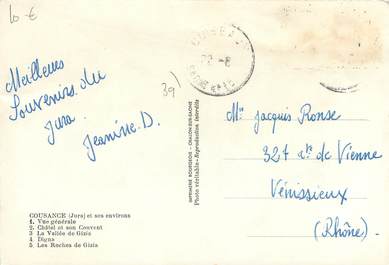 10 €
39)
Meilleurs
Souvenirs du
Jura
Jeanine.D.
Mr Jacques Ronse
327 de Vienne
Vénissieux
(Rhône)
IMPRIMERIE BOURGEOIS - CHALON-SUR-SAONE
Photo véritable - Reproduction interdite
COUSANCE (Jura) et ses environs
1. Vue générale
2. Châtel et son Couvent
3 La Vallée de Gizia
4 Digna
5 Les Roches de Gizia